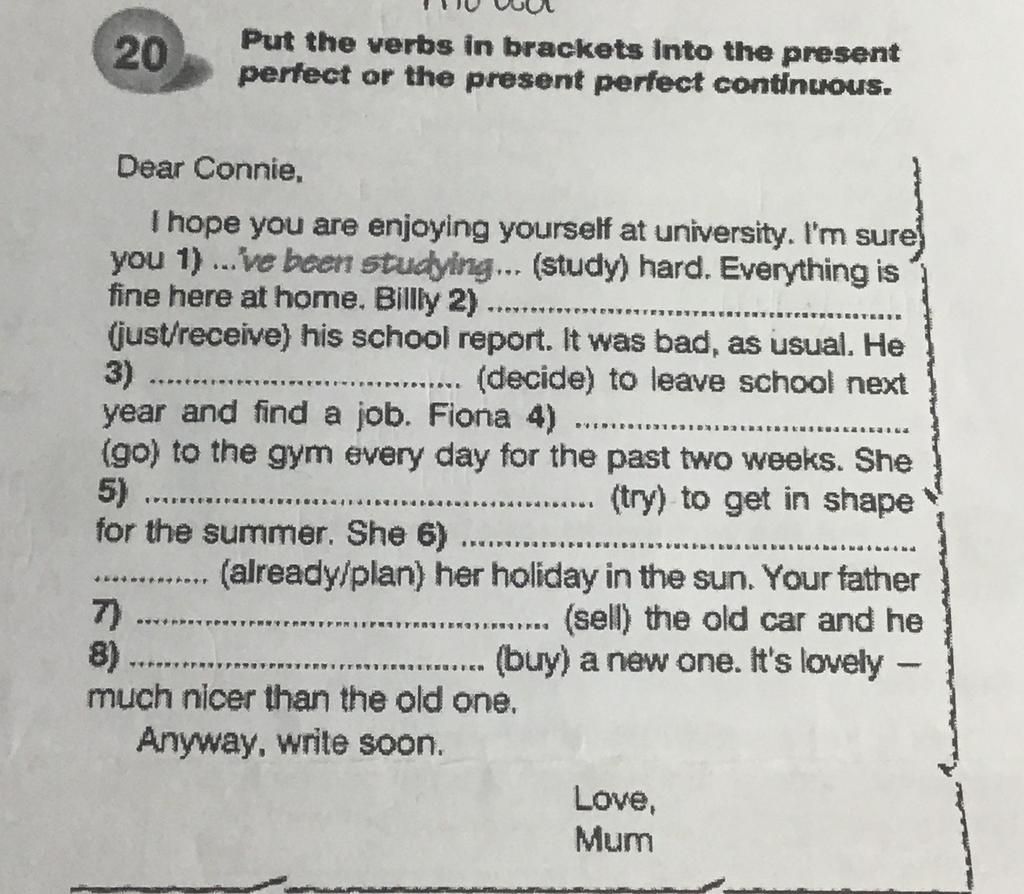 20
Put the verbs in brackets into the present
perfect or the present perfect continuous.
Dear Connie,
I hope you are enjoying yourself at university. I'm sure
you 1) ...'ve been studying... (study) hard. Everything is
fine here at home. Billly 2) ..........................................
(just/receive) his school report. It was bad, as usual. He
3) .................................. (decide) to leave school next
year and find a job. Fiona 4) ..................................
(go) to the gym every day for the past two weeks. She
5) .............................................. (try) to get in shape
for the summer. She 6) ..............................................
............. (already/plan) her holiday in the sun. Your father
7) .......................................... (sell) the old car and he
8) .................................... (buy) a new one. It's lovely —
much nicer than the old one.
Anyway, write soon.
Love,
Mum